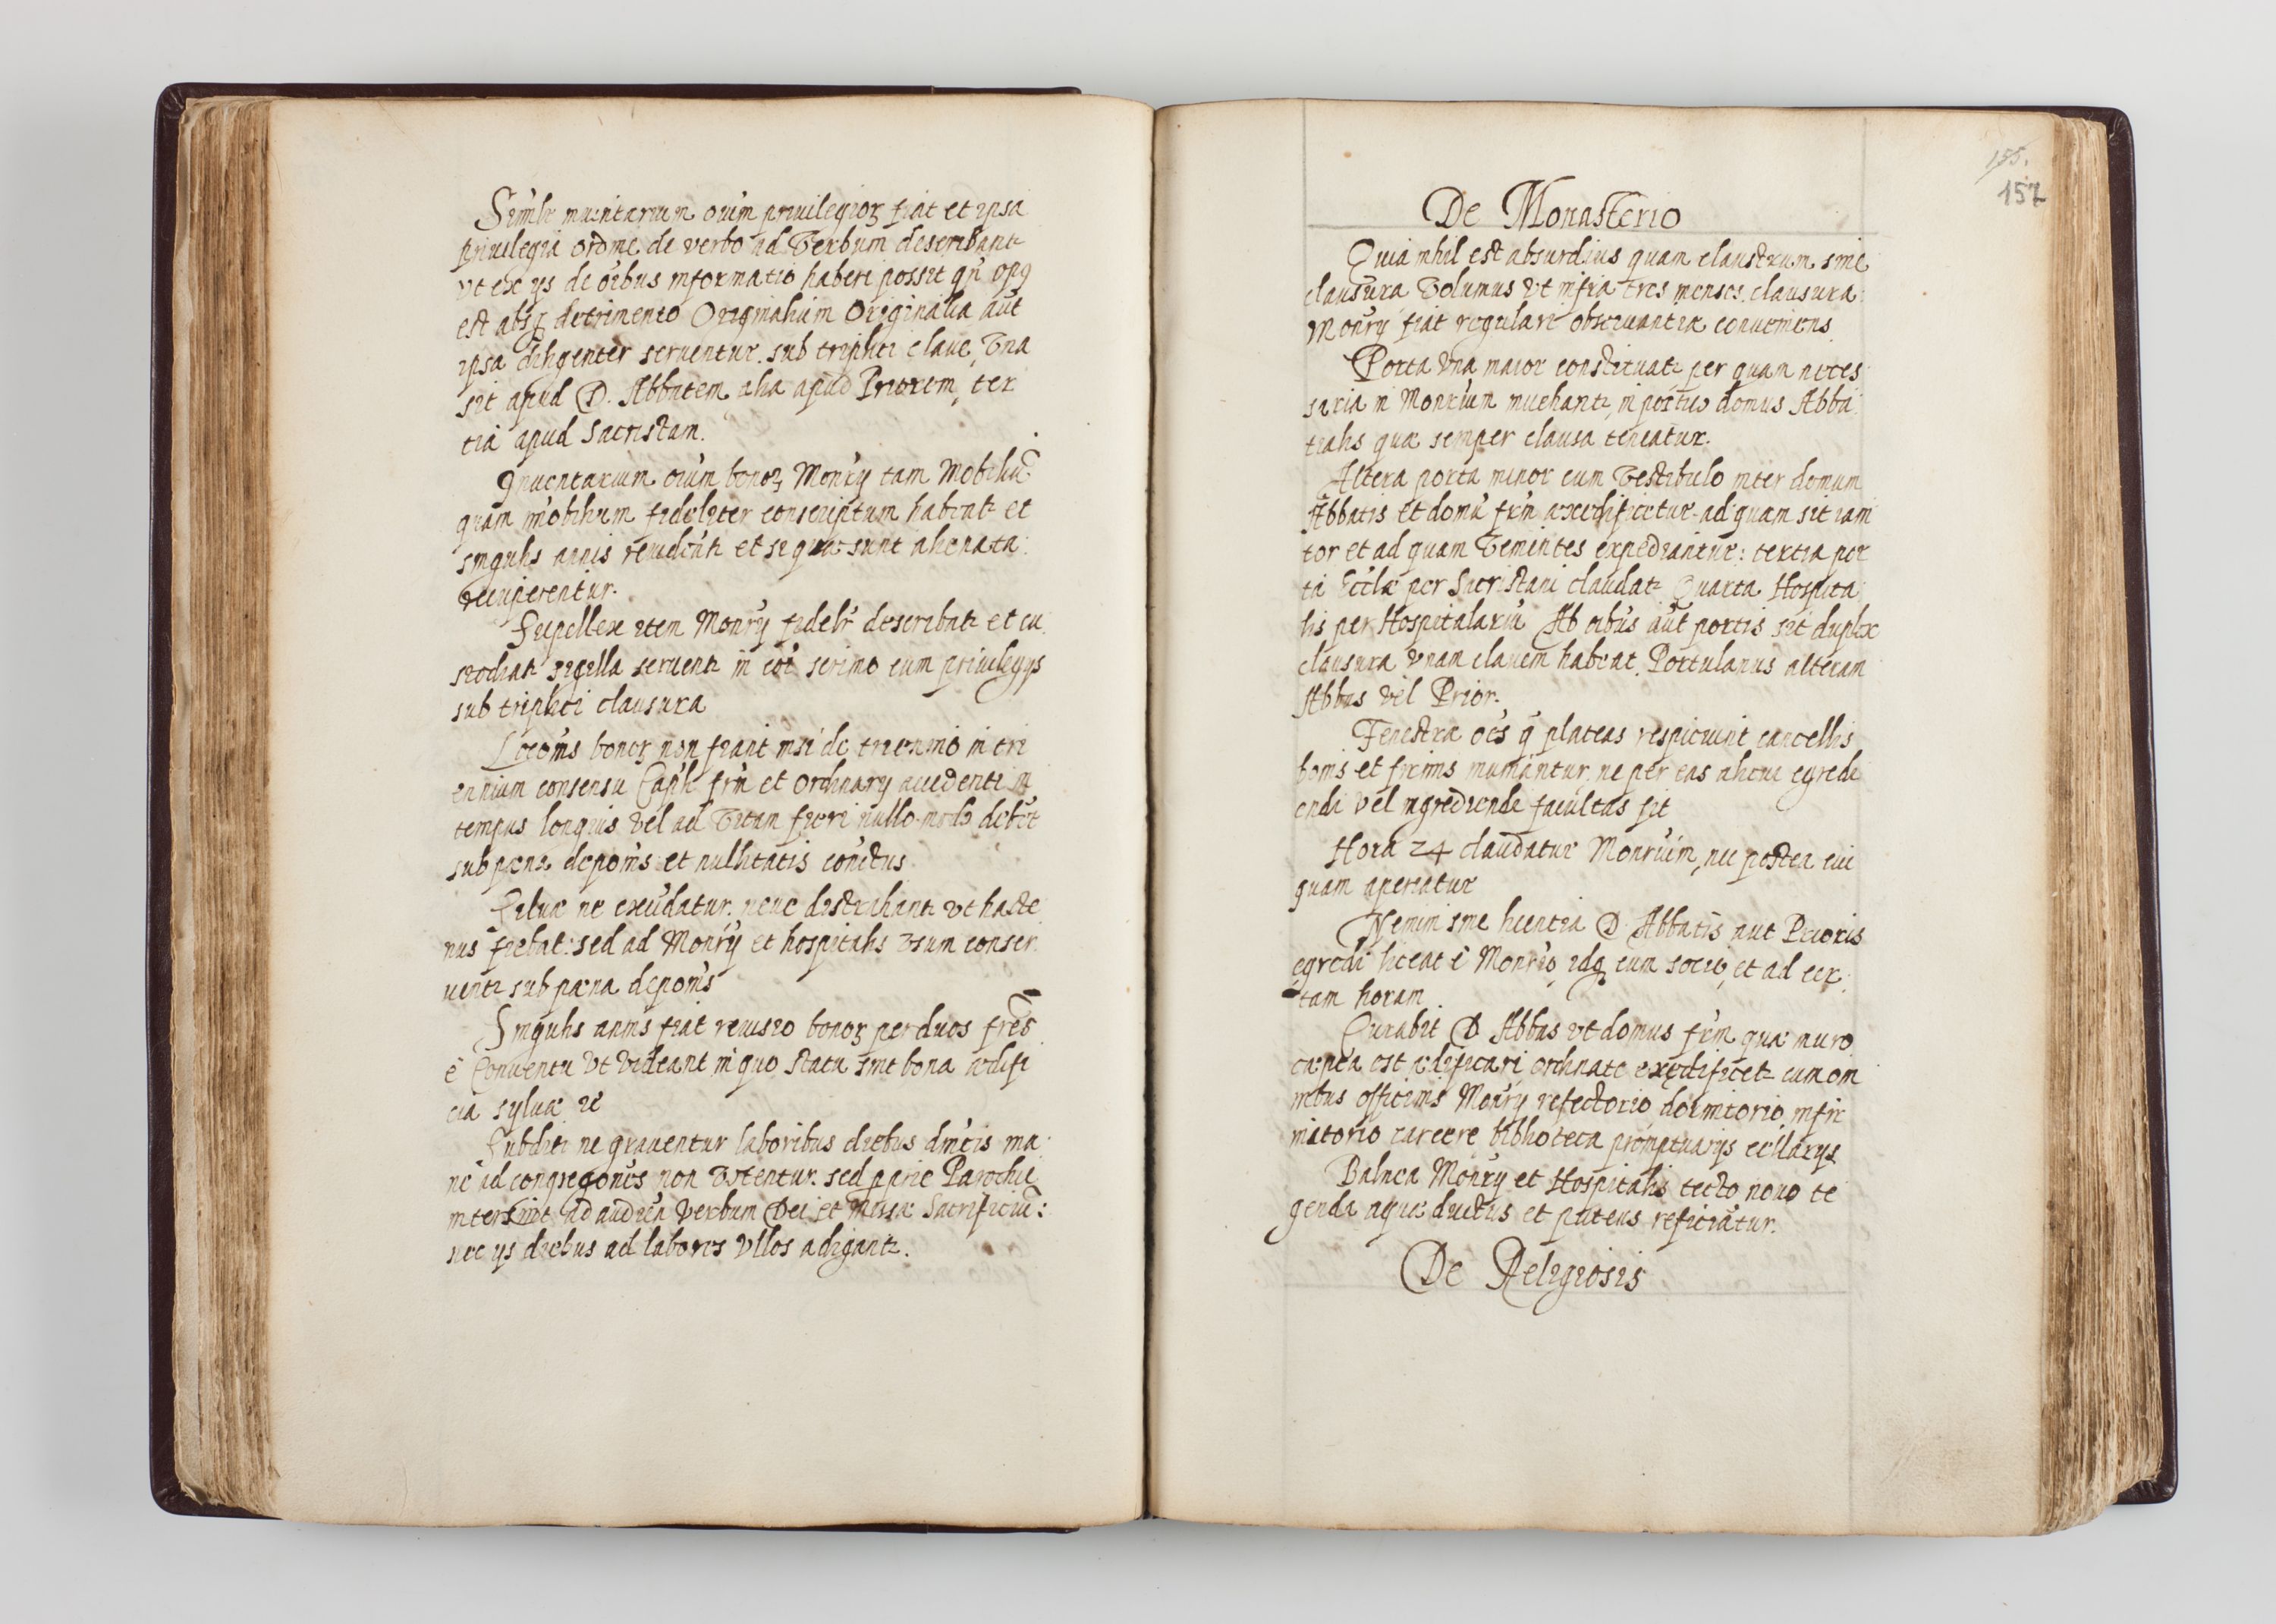 Simlr inuentarium oium priuilegioꝝ fiat et ipsa
priuilegia ordine de verbo ad Verbum describantꝛ
vt ex ijs de oibus informatio haberi possit qn̄ opꝰ
est absqꝫ detrimento Originalium Originalia aut̄
ipsa diligenter seruentur sub triplici claue, Vna
sit apud D. Abbatem alia apud Priorem, ter
tia apud Sacristam.
Inuentarium oium bonoꝝ Monrij tam Mobiliū
quam imobilium fideliter conscriptum habeatꝛ et
singulis annis reuideatꝛ et si quæ sunt alienata
recuperentur.
Supellex item Monrij fidelr describatꝛ et cu
stodiatꝛ sigilla seruentꝛ in eodē scrinio cum priuilegijs
sub triplici clausura
Locōnis bonoꝝ non fiant nisi de triennio in tri
ennium consensu Capli frm et Ordinarij accedenti in
tempus longius vel ad Vitam fieri nullo modo debet
sub pæna deponis et nullitatis conctus
Siluæ ne excidatur neue distrahantꝛ vt hacte
nus fiebat: sed ad Monrij et hospitalis Vsum conser
uentꝛ sub pæna deponis
Singulis annis fiat reuisio bonoꝝ per duos fres
è Conuentu vt Videant in quo statu sint bona ædifi
cia syluæ ꝛc
Subditi ne grauentur laboribus diebus dnicis ma
ne ad congregōnes non Vocentur sed parie Parochie
intersint ad audien Verbum Dei et Missæ Sacrificiū:
nec ijs diebus ad labores Vllos adigantꝛ.
155.
157
De Monasterio
Quia nihil est absurdius quam claustrum sine
clausura Volumus Vt infra tres menses clausura
Monrij fiat regulari obseruantiæ conueniens
Porta Vna maior constituatꝛ per quam neces
saria in Monrium inuehantꝛ in porticu domus Abba
tialis quæ semper clausa teneatur.
Altera porta minor cum Vestibulo inter domum
Abbatis et domū frm exædificetur ad quam sit iani
tor et ad quam Venientes expediantur: tertia por
ta Ecclæ per Sacristam claudatꝛ Quarta Hospita
lis per Hospitalariū Ab oibus aut̄ portis sit duplex
clausura Vnam clauem habeat Portulanus alteram
Abbas vel Prior.
Fenestræ oēs q̄ plateas respiciunt cancellis
bonis et firmis muniantur ne per eas alicui egredi
endi vel ingrediende facultas sit
Hora 24 claudatur Monrium, nec postea cui
quam aperiatur
Nemini sine licentia D. Abbatis aut Prioris
egredi liceat è Monrio, idqꝫ cum socio, et ad cer
tam horam
Curabit D Abbas vt domus frm quæ nuro
cæpta est ædificari ordinate exædificetꝛ cum om
nibus officinis Monrij refectorio dormitorio infir
mitorio carcere bibliotheca promptuarijs cellarijs
Balnea Monrij et Hospitalis tecto nouo te
genda aquæ ductus et puteus reficiatur.
De Religiosis